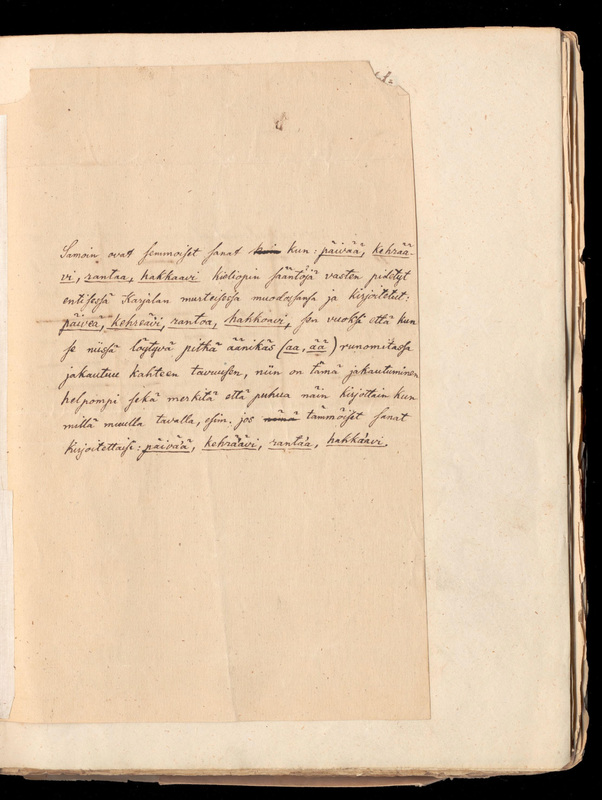 Samoin ovat semmoiset sanat kuin kun: päivää, kehrää-
vi, rantaa, hakkaavi kieliopin sääntöjä vasten pidetyt
entisessä Karjalan murteisessa muodossansa ja kirjoitetut:
päiveä, kehreävi, rantoa, hakkoavi, sen vuoksi että kun
se niissä löytyvä pitkä äänikäs (aa, ää) runomitassa
jakautuu kahteen tavuusen, niin on tämä jakautuminen
helpompi sekä merkitä että puhua näin kirjottain kun
millä muulla tavalla, esim. jos nämä tämmöiset sanat
kirjoitettaisi: päivää, kehräävi, rantaa, hakkaavi.